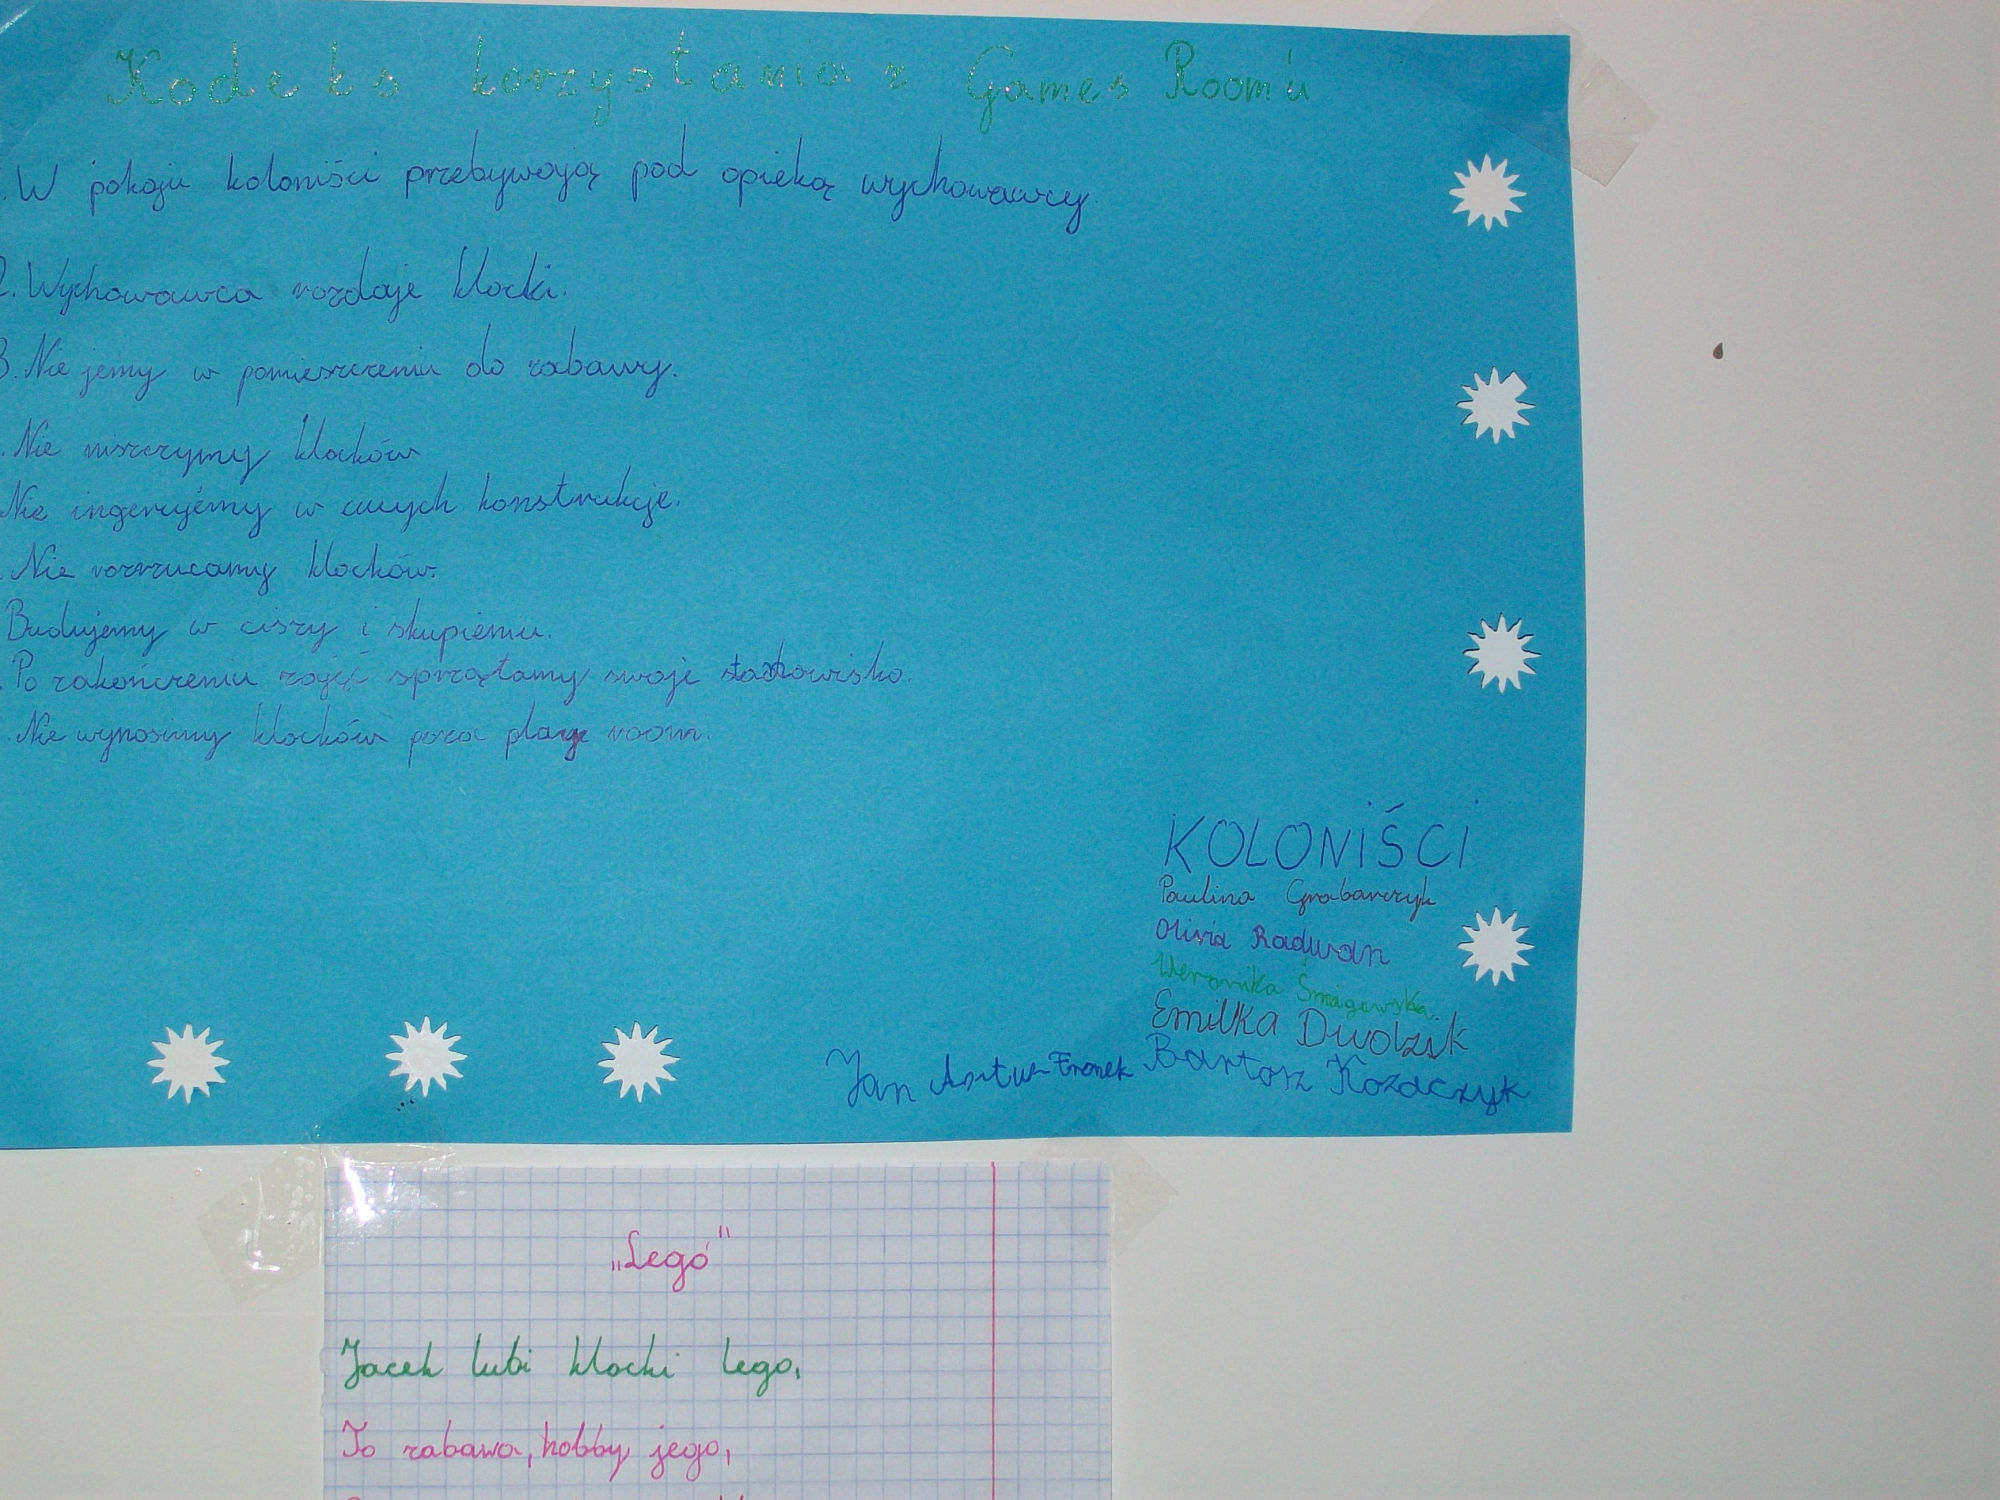 Kodeks korzystania z Games Room'u
W pokoju koloniści przebywają pod opieką wychowawcy.
2. Wychowawca rozdaje klocki.
3. Nie jemy w pomieszczeniu do zabawy.
. Nie niszczymy klocków
Nie ingerujemy w cudzych konstrukcje.
. Nie rozrzucamy klocków.
Budujemy w ciszy i skupieniu.
. Po zakończeniu zajęć sprzątamy swoje stanowisko.
. Nie wynosimy klocków poza play room.
KOLONIŚCI
Paulina Grabarczyk
Oliwia Radwan
Weronika Śmigowska
Emilka Dwodzik
Bartosz Kozaczyk
Jan Artur Fronek
„Lego"
Jacek lubi klocki Lego,
To zabawa, hobby jego,